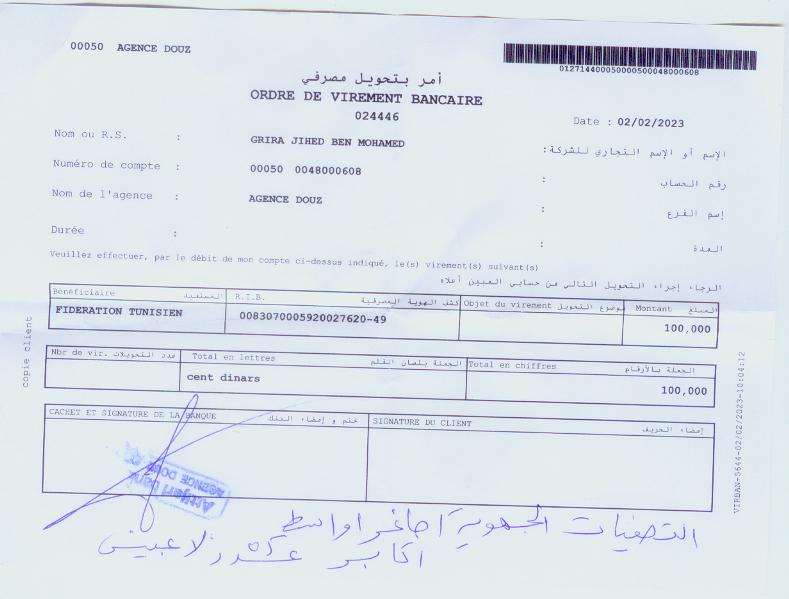 00050 AGENCE DOUZ
01271440005000050004800​0608
أمر بتحويل مصرفي
ORDRE DE VIREMENT BANCAIRE
024446
Date : 02/02/2023
Nom ou R.S. : GRIRA JIHED BEN MOHAMED الإسم أو الإسم التجاري للشركة:
Numéro de compte : 00050 0048000608 : رقم الحساب
Nom de l'agence : AGENCE DOUZ : إسم الفرع
Durée : : المدة
Veuillez effectuer, par le débit de mon compte ci-dessus indiqué, le(s) virement(s) suivant(s)
الرجاء إجراء التحويل التالي من حسابي المبين أعلاه
Bénéficiaire المستفيد R.I.B. كشف الهوية المصرفية Objet du virement موضوع التحويل Montant المبلغ
FIDERATION TUNISIEN 0083070005920027620-49 100,000
Nbr de vir. عدد التحويلات Total en lettres الجملة بلسان القلم Total en chiffres الجملة بالأرقام
cent dinars 100,000
CACHET ET SIGNATURE DE LA BANQUE ختم و إمضاء البنك SIGNATURE DU CLIENT إمضاء الحريف
Attijari bank
AGENCE DOUZ
التصفيات الجهوية أصاغر أواسط
أكابر
لاعبين
copie client
VIRBAN-5644-02/02/2023-10:04:12